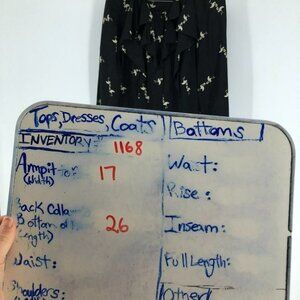 Tops, Dresses, Coats
INVENTORY: 1168
Armpit to: 17
(Width)
Back Colla
Bottom of 26
(Length)
Waist:
Shoulders:
Bottoms
Waist:
Rise:
Inseam:
Full Length:
Other